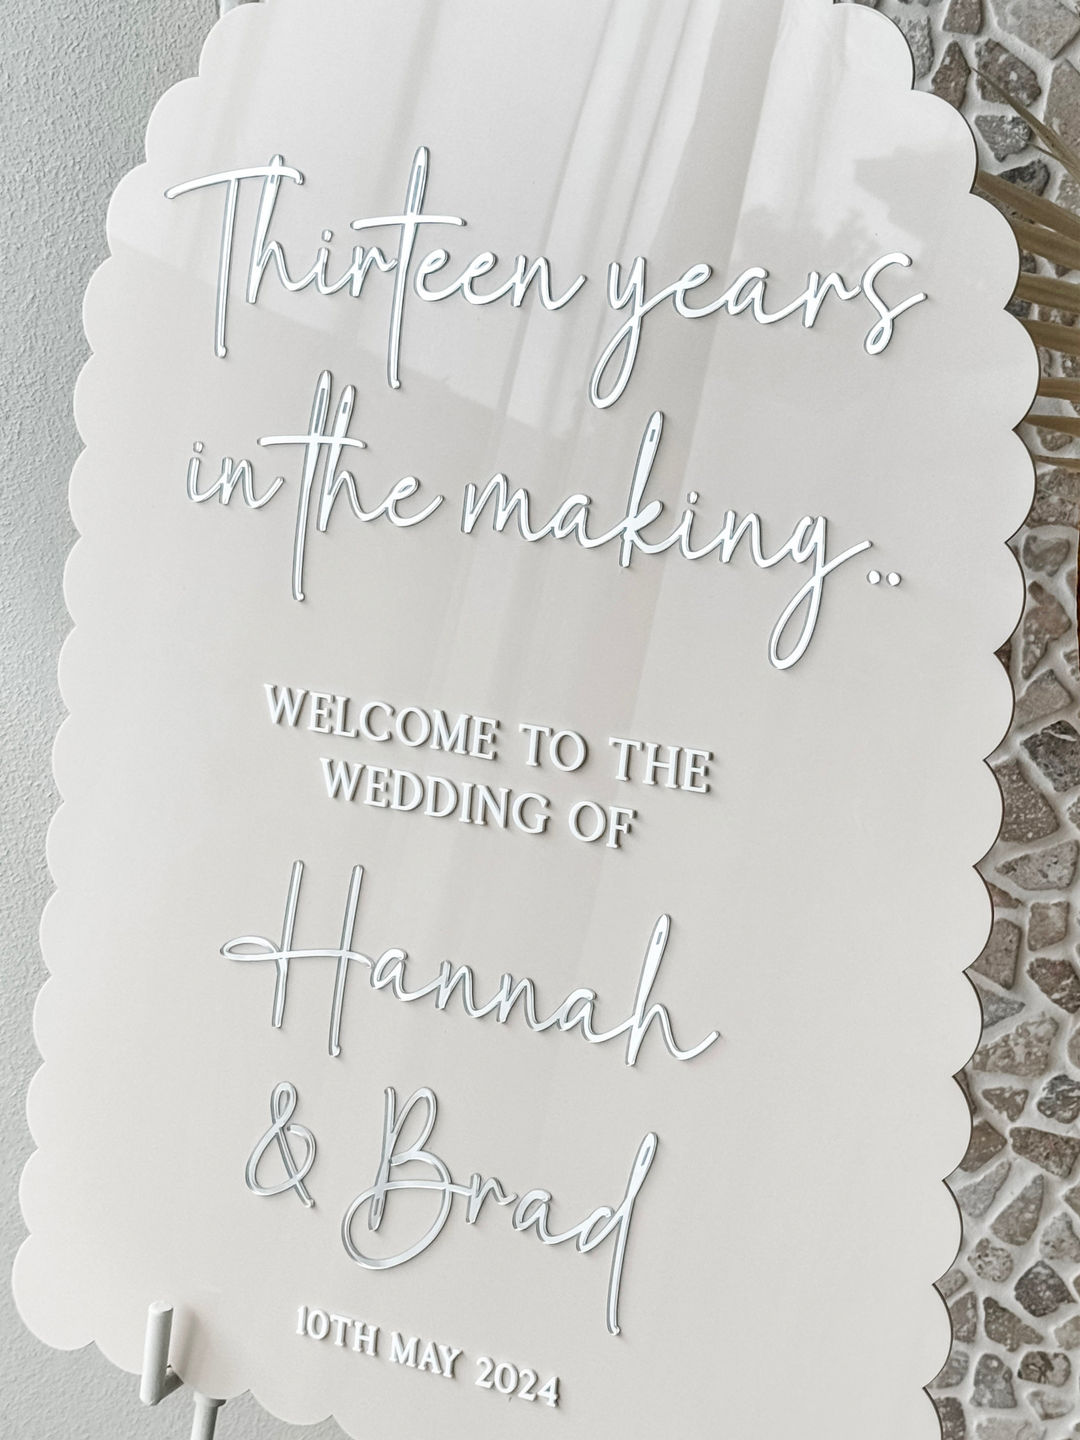 Thirteen years
in the making..
WELCOME TO THE
WEDDING OF
Hannah
& Brad
10TH MAY 2024